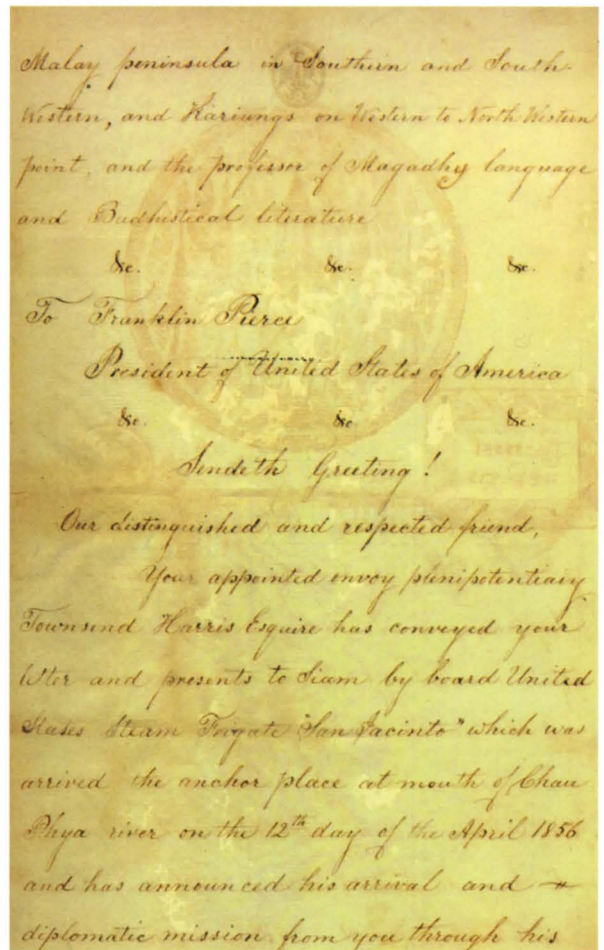 Malay peninsula in Southern and South
Western, and Kariungs on Western to North Western
point, and the professor of Magadhy language
and Budhistical literature
&c. &c. &c.
To Franklin Pierce
President of United States of America
&c. &c &c.
Sendeth Greeting!
Our distinguished and respected friend,
Your appointed envoy plenipotentiary
Townsend Harris Esquire has conveyed your
letter and presents to Siam by board United
States Steam Frigate "San Jacinto" which was
arrived the anchor place at mouth of Chau
Phya river on the 12th day of the April 1856
and has announced his arrival and
diplomatic mission from you through his